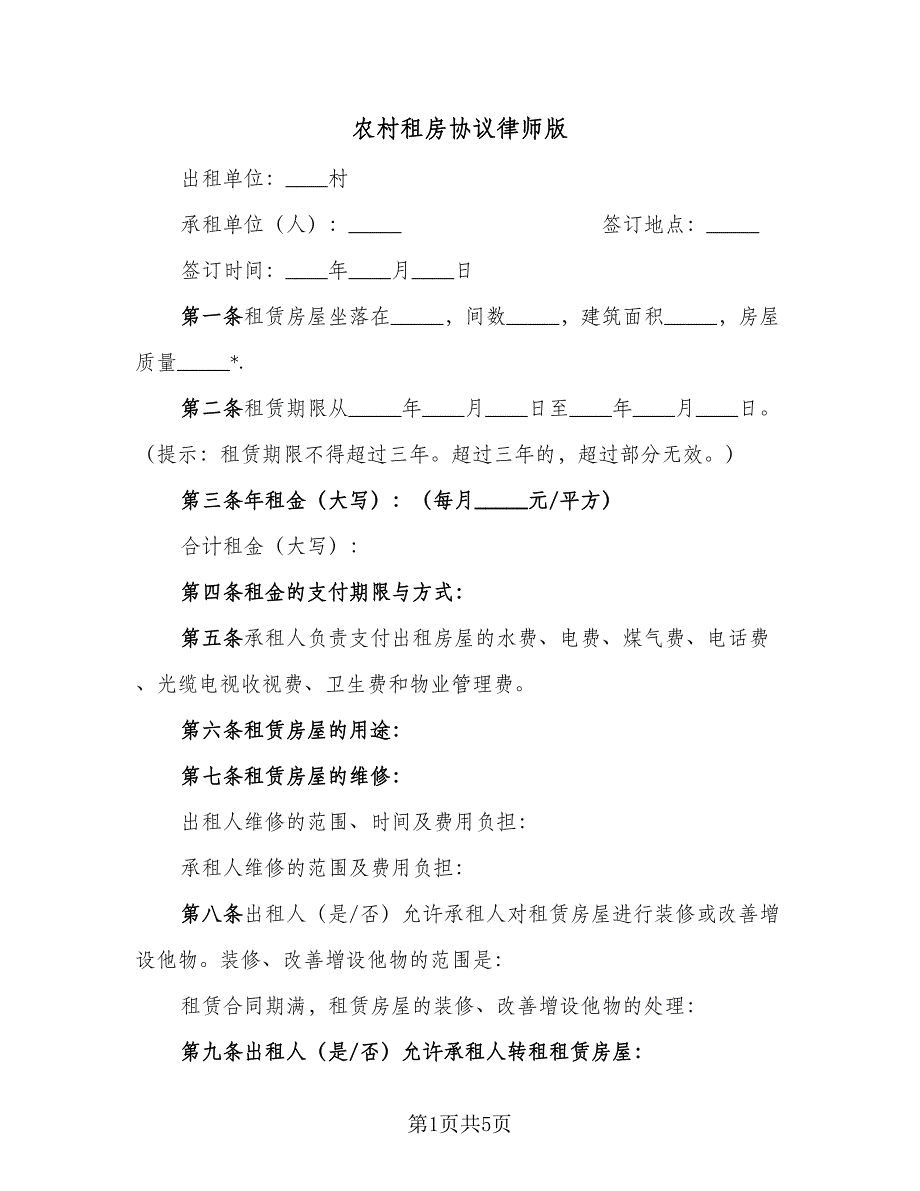 农村租房协议律师版
出租单位：____村
承租单位（人）：_____ 签订地点：_____
签订时间：____年____月____日
第一条租赁房屋坐落在_____，间数_____，建筑面积_____，房屋
质量_____*.
第二条租赁期限从_____年____月____日至____年____月____日。
（提示：租赁期限不得超过三年。超过三年的，超过部分无效。）
第三条年租金（大写）：（每月_____元/平方）
合计租金（大写）：
第四条租金的支付期限与方式：
第五条承租人负责支付出租房屋的水费、电费、煤气费、电话费
、光缆电视收视费、卫生费和物业管理费。
第六条租赁房屋的用途：
第七条租赁房屋的维修：
出租人维修的范围、时间及费用负担：
承租人维修的范围及费用负担：
第八条出租人（是/否）允许承租人对租赁房屋进行装修或改善增
设他物。装修、改善增设他物的范围是：
租赁合同期满，租赁房屋的装修、改善增设他物的处理：
第九条出租人（是/否）允许承租人转租租赁房屋：
第1页共5页